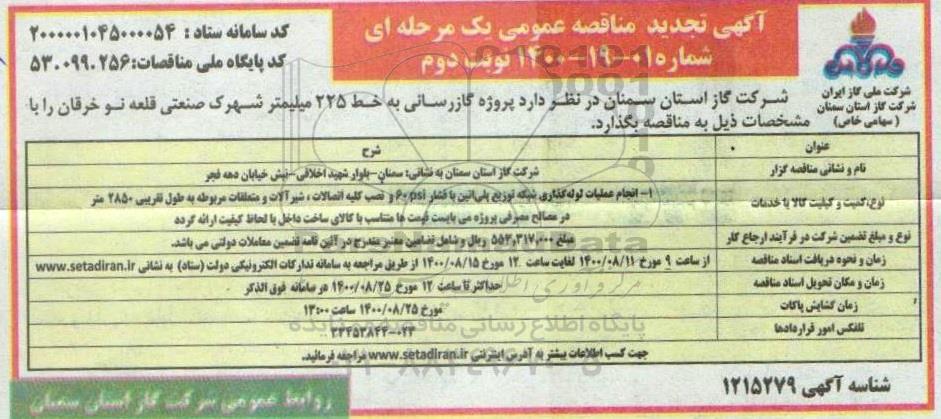 آگهی تجدید مناقصه عمومی یک مرحله ای
شماره ۰۱-۱۹-۱۴۰۰ نوبت دوم
کد سامانه ستاد : ۲۰۰۰۰۰۱۰۴۵۰۰۰۰۵۴
کد پایگاه ملی مناقصات: ۵۳.۰۹۹.۲۵۶
شرکت ملی گاز ایران
شرکت گاز استان سمنان
( سهامی خاص)
شرکت گاز استان سمنان در نظر دارد پروژه گازرسانی به خط ۲۲۵ میلیمتر شهرک صنعتی قلعه نو خرقان را با
مشخصات ذیل به مناقصه بگذارد.
عنوان شرح
نام و نشانی مناقصه گزار شرکت گاز استان سمنان به نشانی: سمنان-بلوار شهید اخلاقی-نبش خیابان دهه فجر
نوع، کمیت و کیفیت کالا یا خدمات ۱- انجام عملیات لوله‌گذاری شبکه توزیع پلی‌اتیلن با فشار ۶۰psi و نصب کلیه اتصالات ، شیرآلات و متعلقات مربوطه به طول تقریبی ۲۸۵۰ متر
در مصالح مصرفی پروژه می بایست قیمت ها متناسب با کالای ساخت داخل با لحاظ کیفیت ارائه گردد
نوع و مبلغ تضمین شرکت در فرآیند ارجاع کار مبلغ ۵۵۳,۳۱۷,۰۰۰ ریال و شامل تضامین معتبر مندرج در آئین نامه تضمین معاملات دولتی می باشد.
زمان و نحوه دریافت اسناد مناقصه از ساعت ۹ مورخ ۱۴۰۰/۰۸/۱۱ لغایت ساعت ۱۲ مورخ ۱۴۰۰/۰۸/۱۵ از طریق مراجعه به سامانه تدارکات الکترونیکی دولت (ستاد) به نشانی www.setadiran.ir
زمان و مکان تحویل اسناد مناقصه حداکثر تا ساعت ۱۲ مورخ ۱۴۰۰/۰۸/۲۵ در سامانه فوق الذکر
زمان گشایش پاکات مورخ ۱۴۰۰/۰۸/۲۵ ساعت ۱۳:۰۰
تلفکس امور قراردادها ۰۲۳-۳۳۴۵۳۸۴۴
جهت کسب اطلاعات بیشتر به آدرس اینترنتی www.setadiran.ir مراجعه فرمائید.
شناسه آگهی ۱۲۱۵۲۷۹
روابط عمومی شرکت گاز استان سمنان